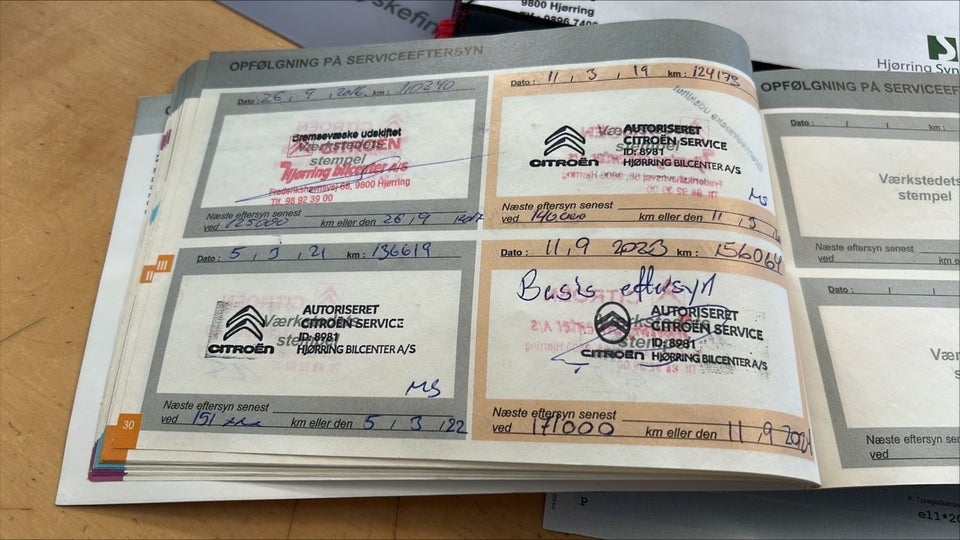 9800 Hjørring
Hjørring Syn
OPFØLGNING PÅ SERVICEEFTERSYN
Dato : 26 , 9 , 2016 km : 110240
Bremsevæske udskiftet
CITROËN
Værkstedets
stempel
Hjørring bilcenter A/S
Frederikshavnsvej 68, 9800 Hjørring
Tlf. 98 92 39 00
Næste eftersyn senest
ved 125000 km eller den 26 , 9 , 2017
Dato : 11 , 3 , 19 km : 124173
Bremsevæske udskiftet
Værkstedets
stempel
CITROËN
AUTORISERET
CITROËN SERVICE
ID: 8981
HJØRRING BILCENTER A/S
MS
Næste eftersyn senest
ved 140.000 km eller den 11 , 3
Dato : 5 , 3 , 21 km : 136619
Værkstedets
stempel
CITROËN
AUTORISERET
CITROËN SERVICE
ID: 8981
HJØRRING BILCENTER A/S
MS
Næste eftersyn senest
ved 151 km eller den 5 , 3 , 22
30
Dato : 11,9 2023 km : 156064
Basis eftersyn
Værkstedets
stempel
CITROËN
AUTORISERET
CITROËN SERVICE
ID: 8981
HJØRRING BILCENTER A/S
Næste eftersyn senest
ved 171000 km eller den 11 , 9 2024
OPFØLGNING PÅ SERVICEEF
Dato : / / km :
Værkstedets
stempel
Næste eftersyn senest
ved km eller den
Dato : / / km :
Næste eftersyn senest
ved km eller
K. Typegodkende
e11*20
P